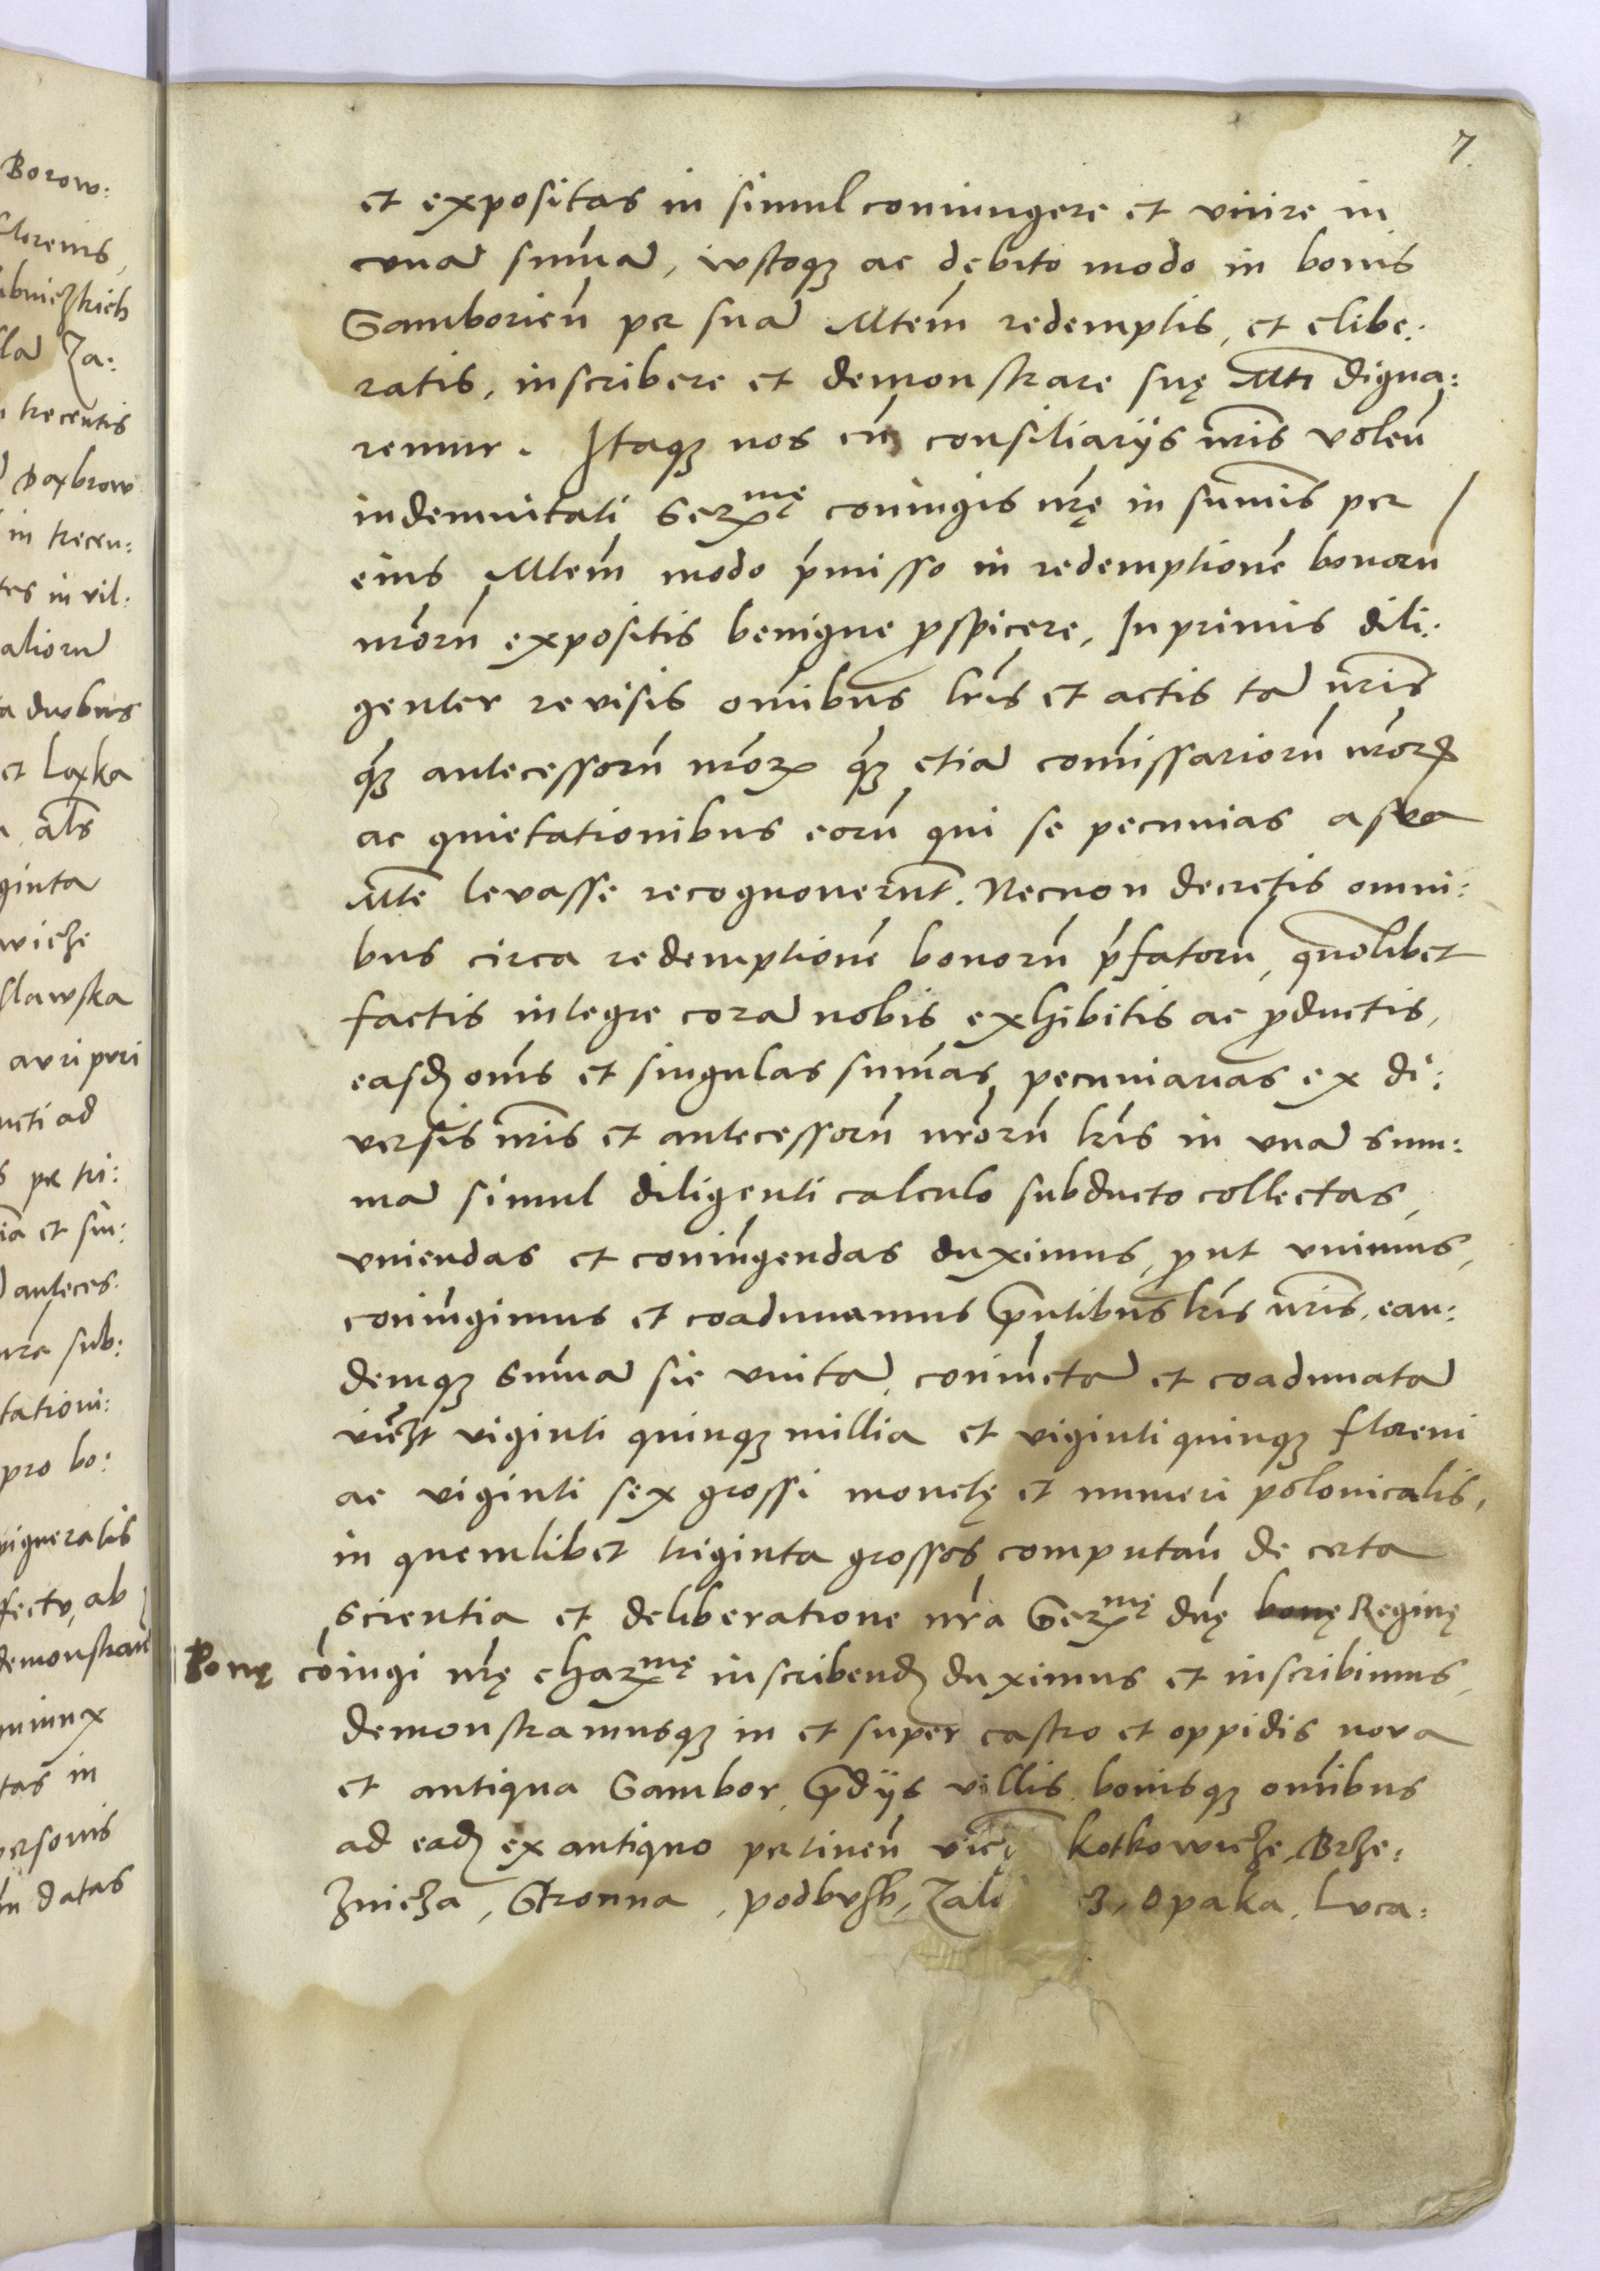 Borow:
florenis,
ubniczkich
sla Za:
trecentis
Daxbrow
in trecen:
tes in vil:
aliorū
a duobus
et Laxka
al̄s
ginta
wicze
slawska
auri puri
ucti ad
s per tri:
et sin:
anteces:
ure sub:
tationi:
pro bo:
pigneratis
ffectu, ab
demonstran̄
tas in
personis
datas
7.
et expositas in simul coniungere et vnire in
vnā sum̄ā, iustoq₃ ac debito modo in bonis
Samborien̄ per suā Mtem̄ redemptis, et elibe:
ratis, inscribere et demonstrare suę Mti digna:
remur. Itaq₃ nos cū consiliarijs nr̄is volen̄
indemnitati Serᵐę coniugis nr̄ę in sum̄is per /
eius Mtem̄ modo p̄misso in redemptionē bonorū
nr̄orū expositis benigne ꝓspicere, In primis dili:
genter revisis om̄ibus lr̄is et actis tā nr̄is
q̄₃ antecessorū nr̄oꝝ q̄₃ etiā com̄issariorū nr̄orꝝ
ac quietationibus eorū qui se pecunias a sua
Mte levasse recognouerūt. Necnon decretis omni:
bus circa redemptionē bonorū p̄fatorū, quolibet
factis integre corā nobis exhibitis ac ꝓductis,
easd om̄s et singulas sum̄as pecuniarias ex di:
versis nr̄is et antecessorū nr̄orū lr̄is in vnā sum:
mā simul diligenti calculo subducto collectas,
vniendas et coniūgendas duximus, ꝓut vnimus,
coniūgimus et coadunamus p̄ntibus lr̄is nr̄is, ean:
demq₃ sum̄ā sic vnitā, coniūctā et coadunatā
vi₃t viginti quinq₃ millia et viginti quinq₃ floreni
ac viginti sex grossi monetę et numeri polonicalis,
in quemlibet triginta grossos computan̄ de certa
scientia et deliberatione nr̄a Serᵐę dn̄ę bonę Reginę
Bonę cōiugi nr̄ę charᵐę inscribend duximus et inscribimus,
demonstramusq₃ in et super castro et oppidis nova
et antiqua Sambor, p̄dijs villis, bonisq₃ om̄ibus
ad ead ex antiquo pertinen̄ Kotkowicze, Brze:
znicza, Stronna, podbusz, Opaka, Luca: